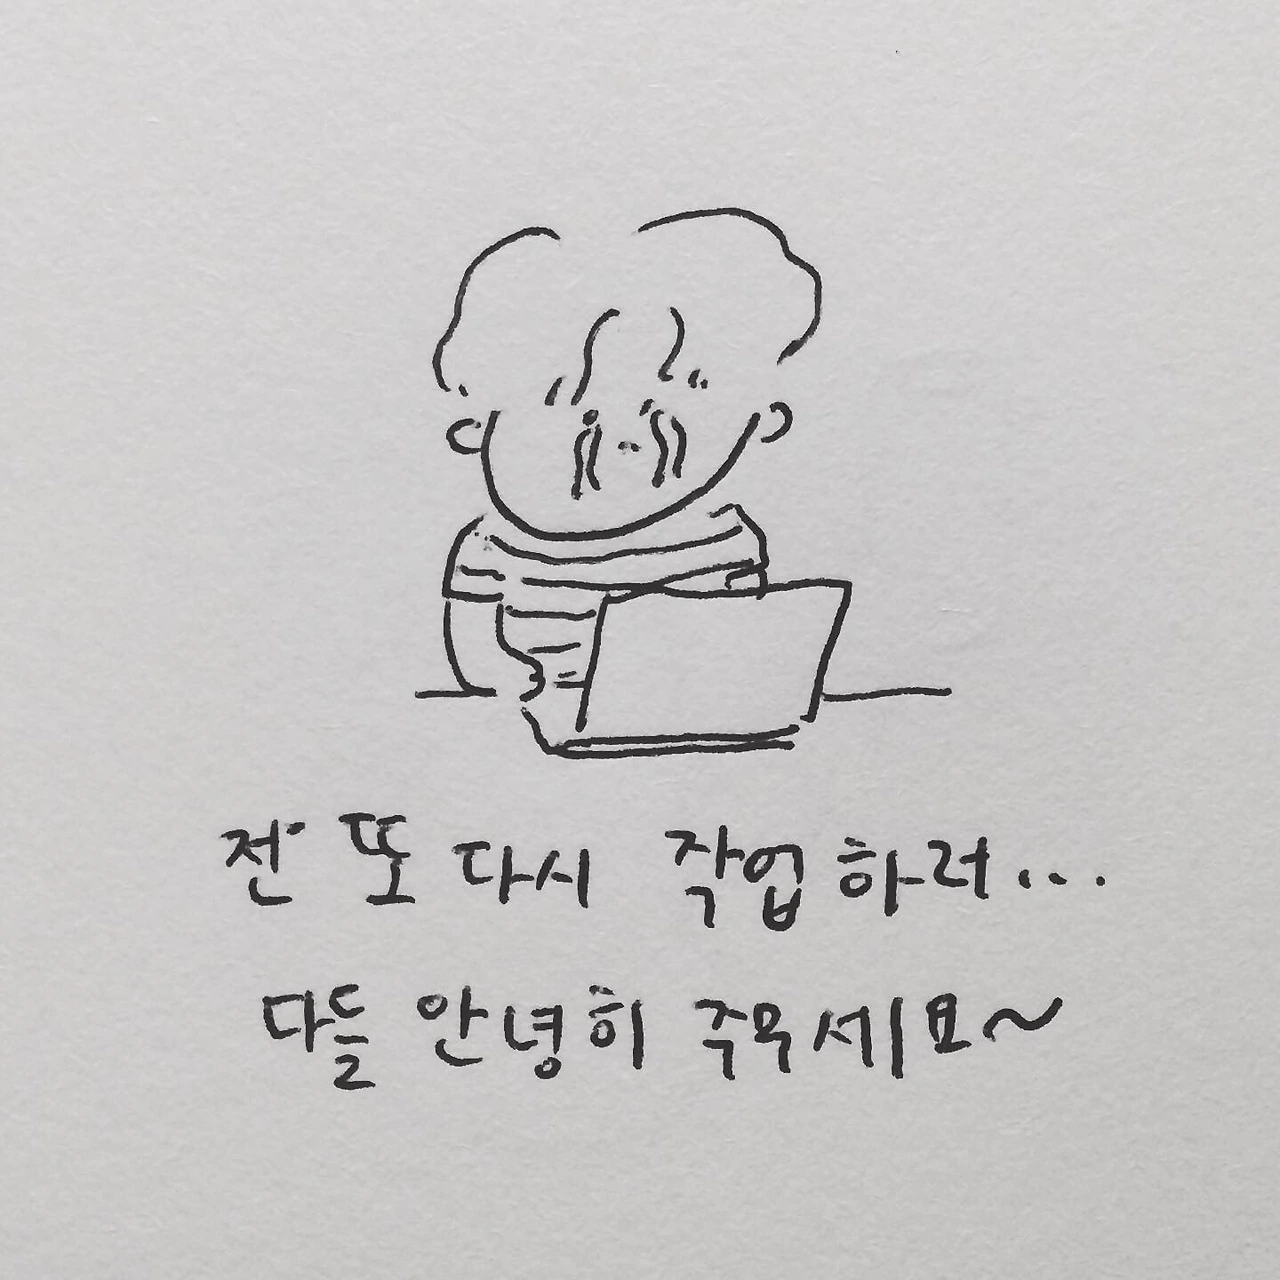 전 또 다시 작업하러...
다들 안녕히 주무세요~